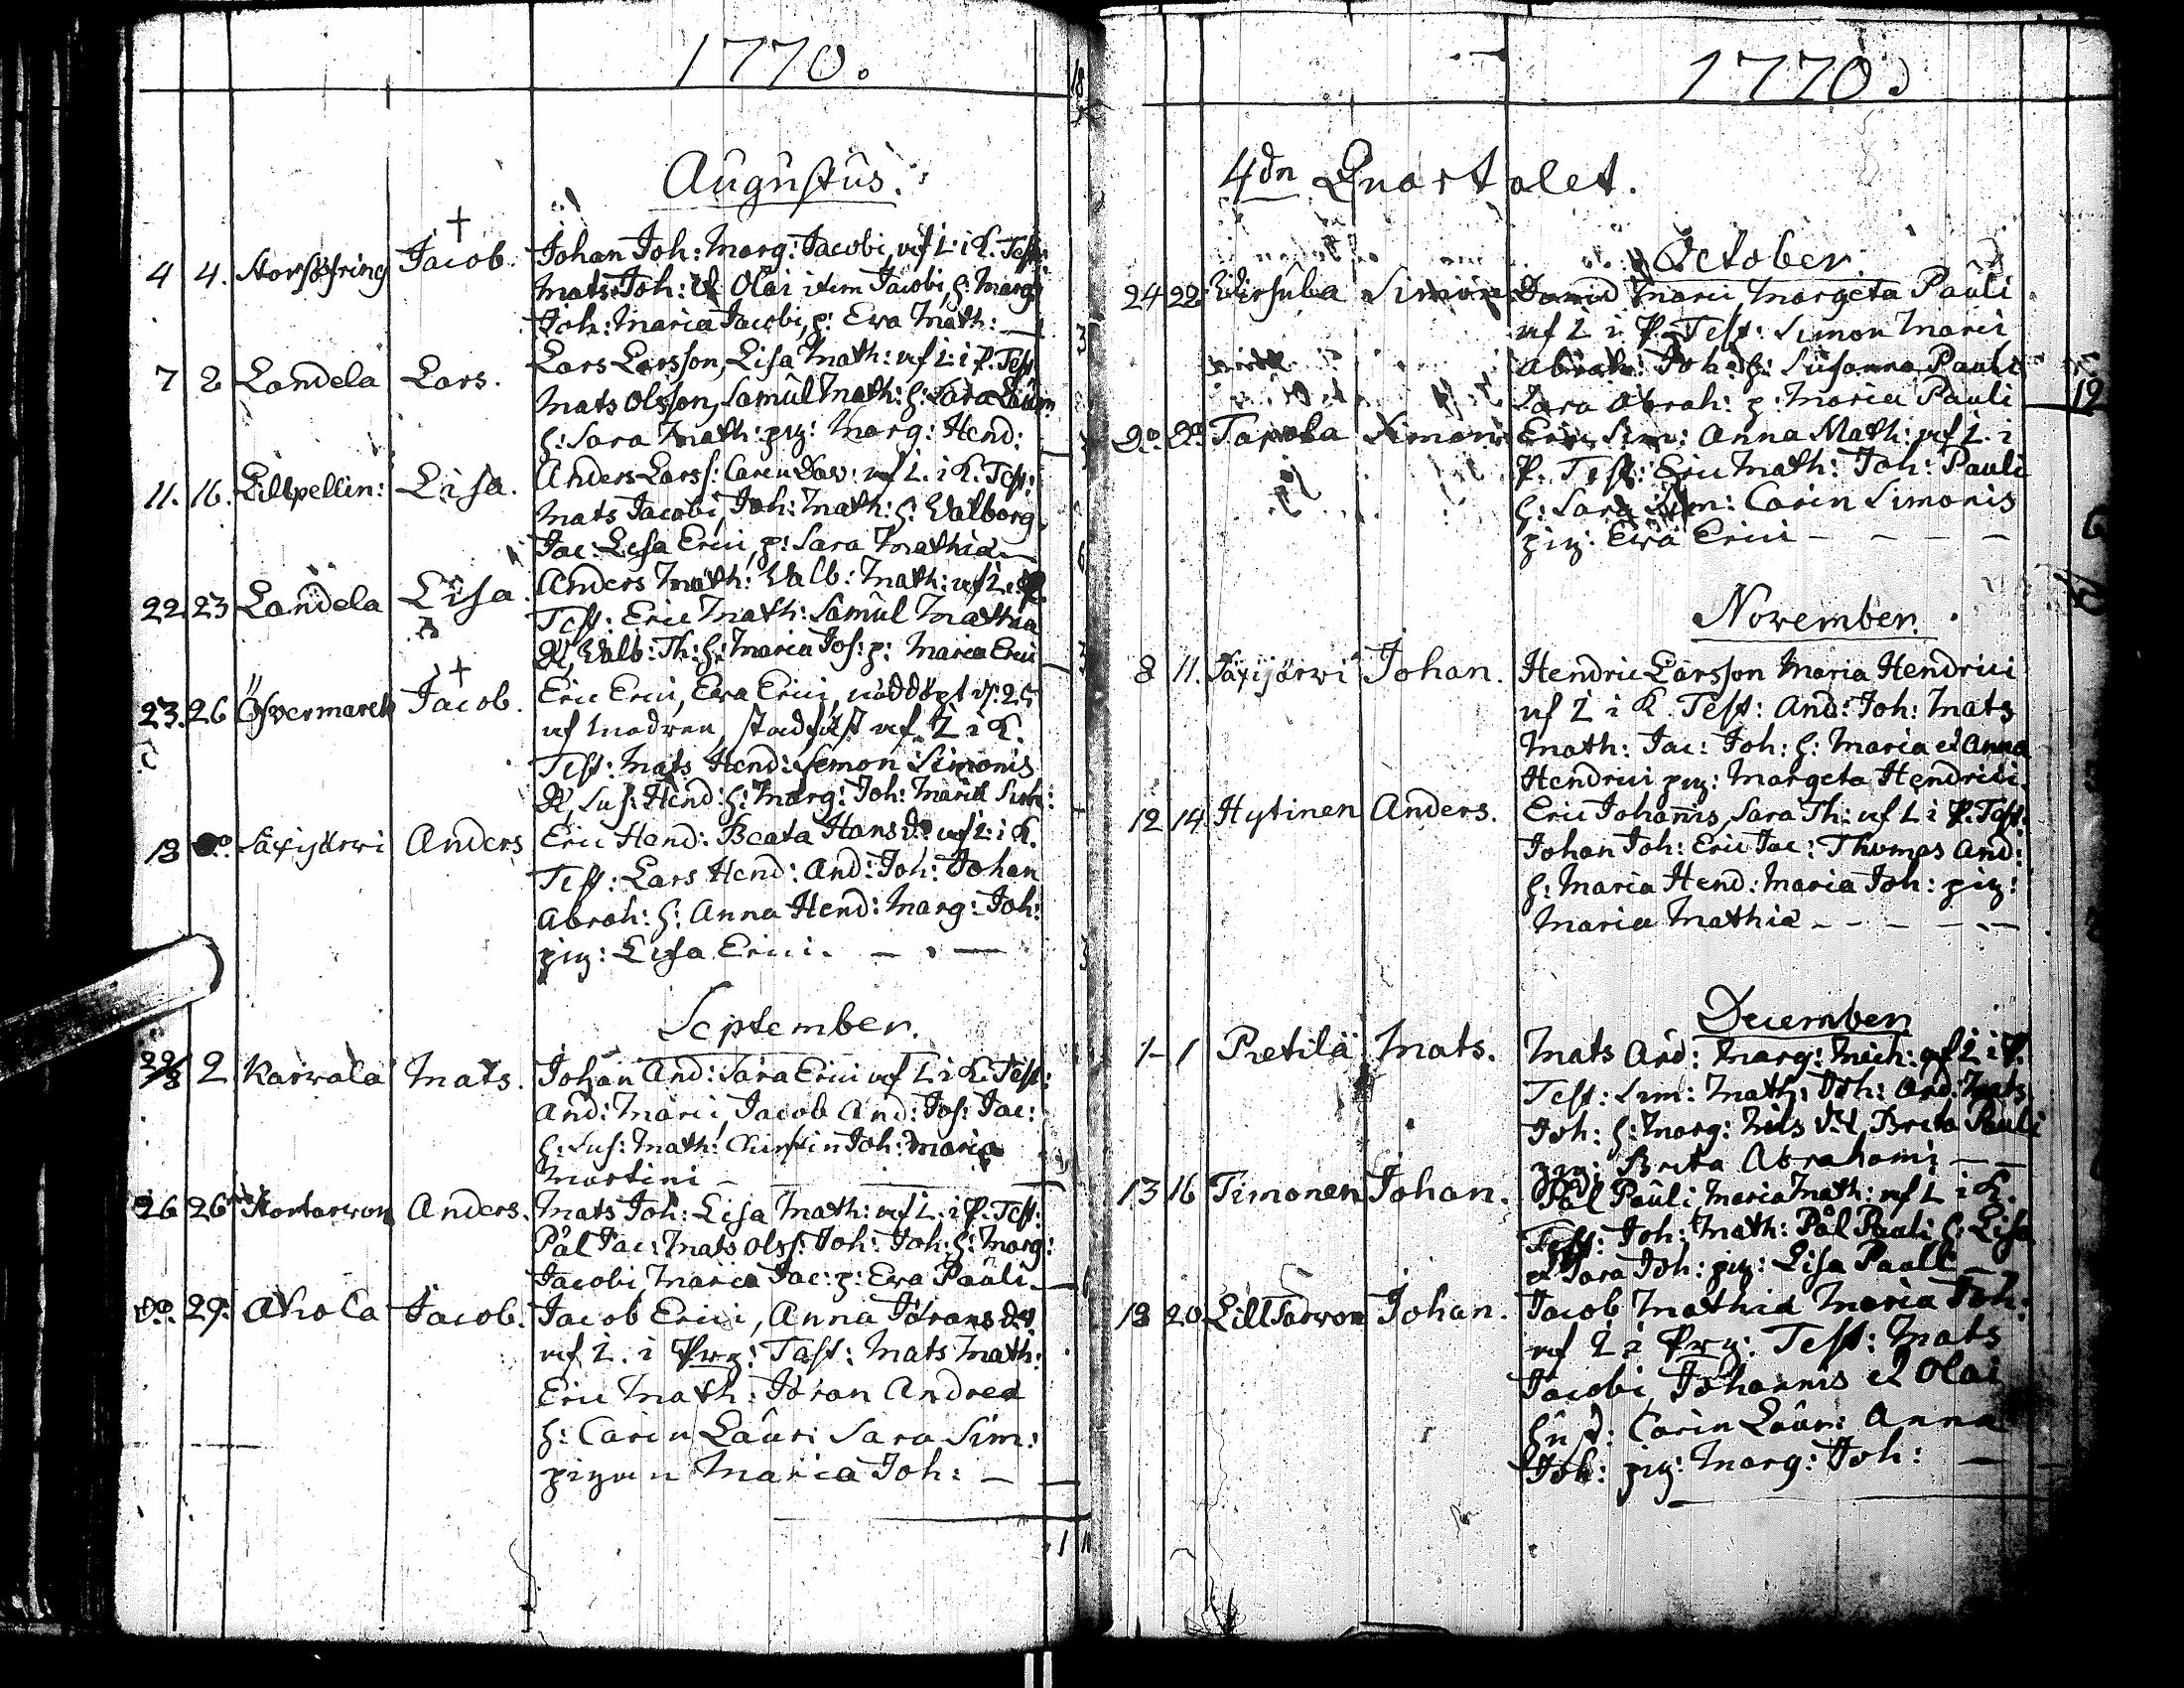 1770.
Augustus.
4 4. Jacob. Johan Joh: Marg: Jacobi, af L: i K. Test:
Mats Joh: et Olai item Jacobi, h: Marg:
Joh: Maria Jacobi, p: Ewa Math: —
7 8 Landela Lars. Lars Larsson, Lisa Math: af L: i P. Test
Mats Olsson, Samul Math: h: Sara Laur:
h: Sara Math: pig: Marg: Hend:
11. 16. Lillpellin: Lisa. Anders Larss: Carin Dav: af L. i K. Test:
Mats Jacobi, Joh: Math: h: Walborg
Jac: Lisa Erici, p: Sara Mathiæ —
22. 23 Landela Lisa. Anders Math: Walb: Math: af L. i P.
Test: Eric Math: Samul Mathiæ
Walb: Th: h: Maria Jos: p: Maria Erici
23. 26 Öfvermarck Jacob. Eric Erici, Ewa Erici, nöddöpt d. 25
af modren, stadfäst af L i K.
Test: Mats Hend: Simon Simonis
Sus: Hend: h: Marg: Joh: Maria Sim:
18 do. Säxijärwi Anders Eric Hend: Beata Hans dr. af L: i K.
Test: Lars Hend: And: Joh: Johan
Abrah: h: Anna Hend: Marg: Joh:
pig: Lisa Erici. — —
September.
2 Karwala Mats. Johan And: Sara Erici af L. i K. Test:
And: Marci, Jacob And: Jos: Jac:
h: Sus: Math: Chirstin Joh: Maria
Martini —
26 26 Anders. Mats Joh: Lisa Math: af L. i P. Test:
Pål Jac: Mats Olss: Joh: Joh: h: Marg:
Jacobi, Maria Jac: p: Ewa Pauli —
Do. 29. Ahola Jacob. Jacob Erici, Anna Jörans dr
af L. i Test: Mats Math:
Eric Math: Jöran Andreæ
h: Carin Laur: Sara Sim:
pigan Maria Joh: —
1770
4dn Quartalet.
October.
24 28 Wirsula Simon Marci, Margeta Pauli
af L i P. Test: Simon Marci
Abrah: Joh: h: Susanna Pauli
Sara Abrah: p: Maria Pauli
Do. Do. Tapola Simon Eric Sim: Anna Math: af L. i
P. Test: Eric Math: Joh: Pauli
h: Sara Sim: Carin Simonis
pig: Ewa Erici — — — —
November.
8 11. Säxijärwi Johan. Hendric Larsson Maria Hendrici
af L i K. Test: And: Joh: Mats
Math: Jac: Joh: h: Maria et Anna
Hendrici pig: Margeta Hendrici.
12 14. Hytinen Anders. Eric Johannis, Sara Th: af L i P. Test:
Johan Joh: Eric Jac: Thomas And:
h: Maria Hend: Maria Joh: pig:
Maria Mathiæ — — — — —
December
1 1 Pretilä Mats. Mats And: Marg: Mich: af L i P.
Test: Sim: Math: Joh: And: Mats
Joh: h: Marg: Nils dr Brita Pauli
pig: Brita Abrahami — —
13 16 Timonen Johan. Pål Pauli, Maria Math: af L i K.
Test: Joh: Math: Pål Pauli h: Lisa
et Sara Joh: pig: Lisa Pauli —
18 20 Lilltarwon Johan. Jacob Mathiæ Maria Joh:
af L i Test: Mats
Jacobi, Johannis et Olai
hust: Carin Laur: Anna
Joh: pig: Marg: Joh: —